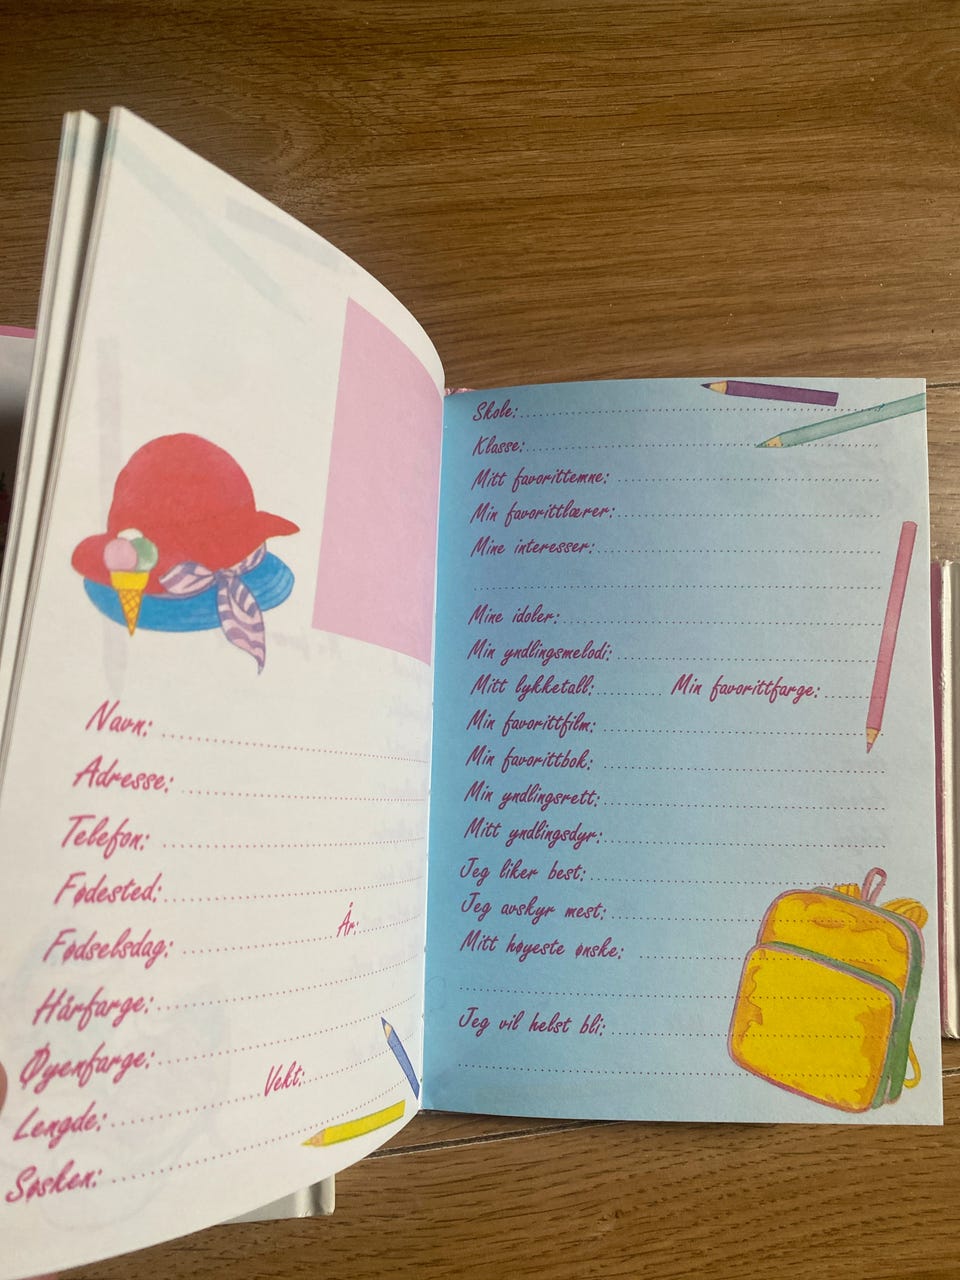 Navn:
Adresse:
Telefon:
Fødested:
Fødselsdag: År:
Hårfarge:
Øyenfarge:
Lengde: Vekt:
Søsken:
Skole:
Klasse:
Mitt favorittemne:
Min favorittlærer:
Mine interesser:
Mine idoler:
Min yndlingsmelodi:
Mitt lykketall: Min favorittfarge:
Min favorittfilm:
Min favorittbok:
Min yndlingsrett:
Mitt yndlingsdyr:
Jeg liker best:
Jeg avskyr mest:
Mitt høyeste ønske:
Jeg vil helst bli: